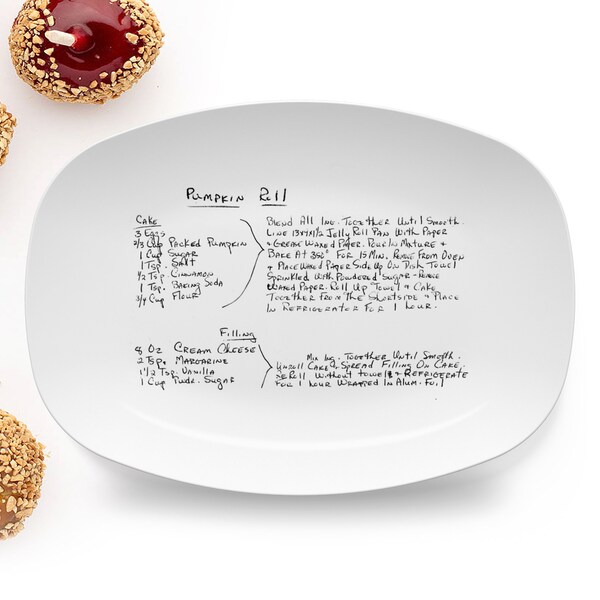 Pumpkin Roll
Cake
3 Eggs
2/3 Cup Packed Pumpkin
1 Cup Sugar
1 Tsp. Salt
1/2 Tsp. Cinnamon
1 Tsp. Baking Soda
3/4 Cup Flour
Blend All Ing. Together Until Smooth.
Line Jelly Roll Pan With Paper
+ Grease Waxed Paper. Pour In Mature +
Bake At 350° For 15 Min. Remove From Oven
+ Place Waxed Paper Side Up On Dish Towel
Sprinkled With Powdered Sugar - Remove
Waxed Paper. Roll Up Towel + Cake
Together From The Shortside + Place
In Refrigerator For 1 Hour.
Filling
8 Oz Cream Cheese
2 Tsp. Margarine
1 1/2 Tsp. Vanilla
1 Cup Pwdr. Sugar
Mix Ing. Together Until Smooth.
Unroll Cake + Spread Filling On Cake.
ReRoll Without Towel + Refrigerate
For 1 Hour Wrapped In Alum. Foil